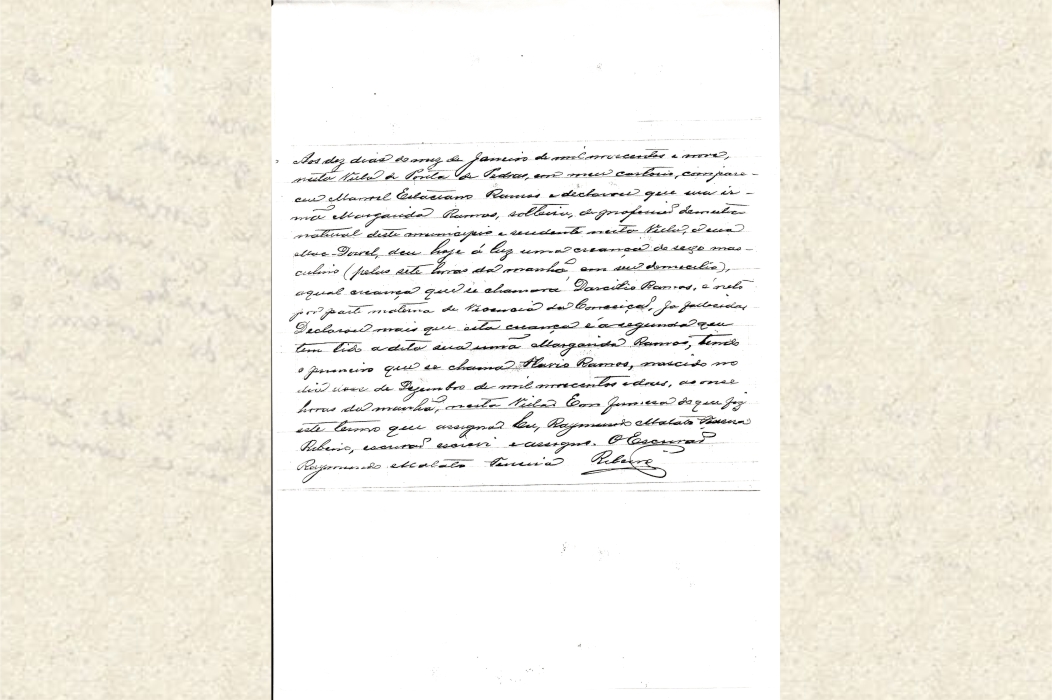 Aos dez dias do mez de Janeiro de mil novecentos e nove,
nesta Villa de Ponta de Pedras, em meu cartorio, compare-
ceu Manoel Estaciano Ramos e declarou que sua ir-
mã Margarida Ramos, solteira, de profissão domestica
natural deste municipio e residente nesta Villa, á rua
Mac-Dowel, deu hoje á luz uma creança do sexo mas-
culino (pelas sete horas da manhã em seu domicilio),
a qual creança que se chamará Darcilio Ramos, é neto
por parte materna de Vicencia da Conceição, ja fallecida.
Declarou mais que esta creança é a segunda que
tem tido a dita sua irmã Margarida Ramos, tendo
o primeiro que se chama Flavio Ramos, nascido no
dia de Dezembro de mil novecentos e dous, as onse
horas da manhã, nesta Villa. Em firmesa do que fiz
este termo que assigna. Eu, Raymundo Malato
Ribeiro, escrivão escrevi e assigno. O Escrivão
Raymundo Malato Ribeiro